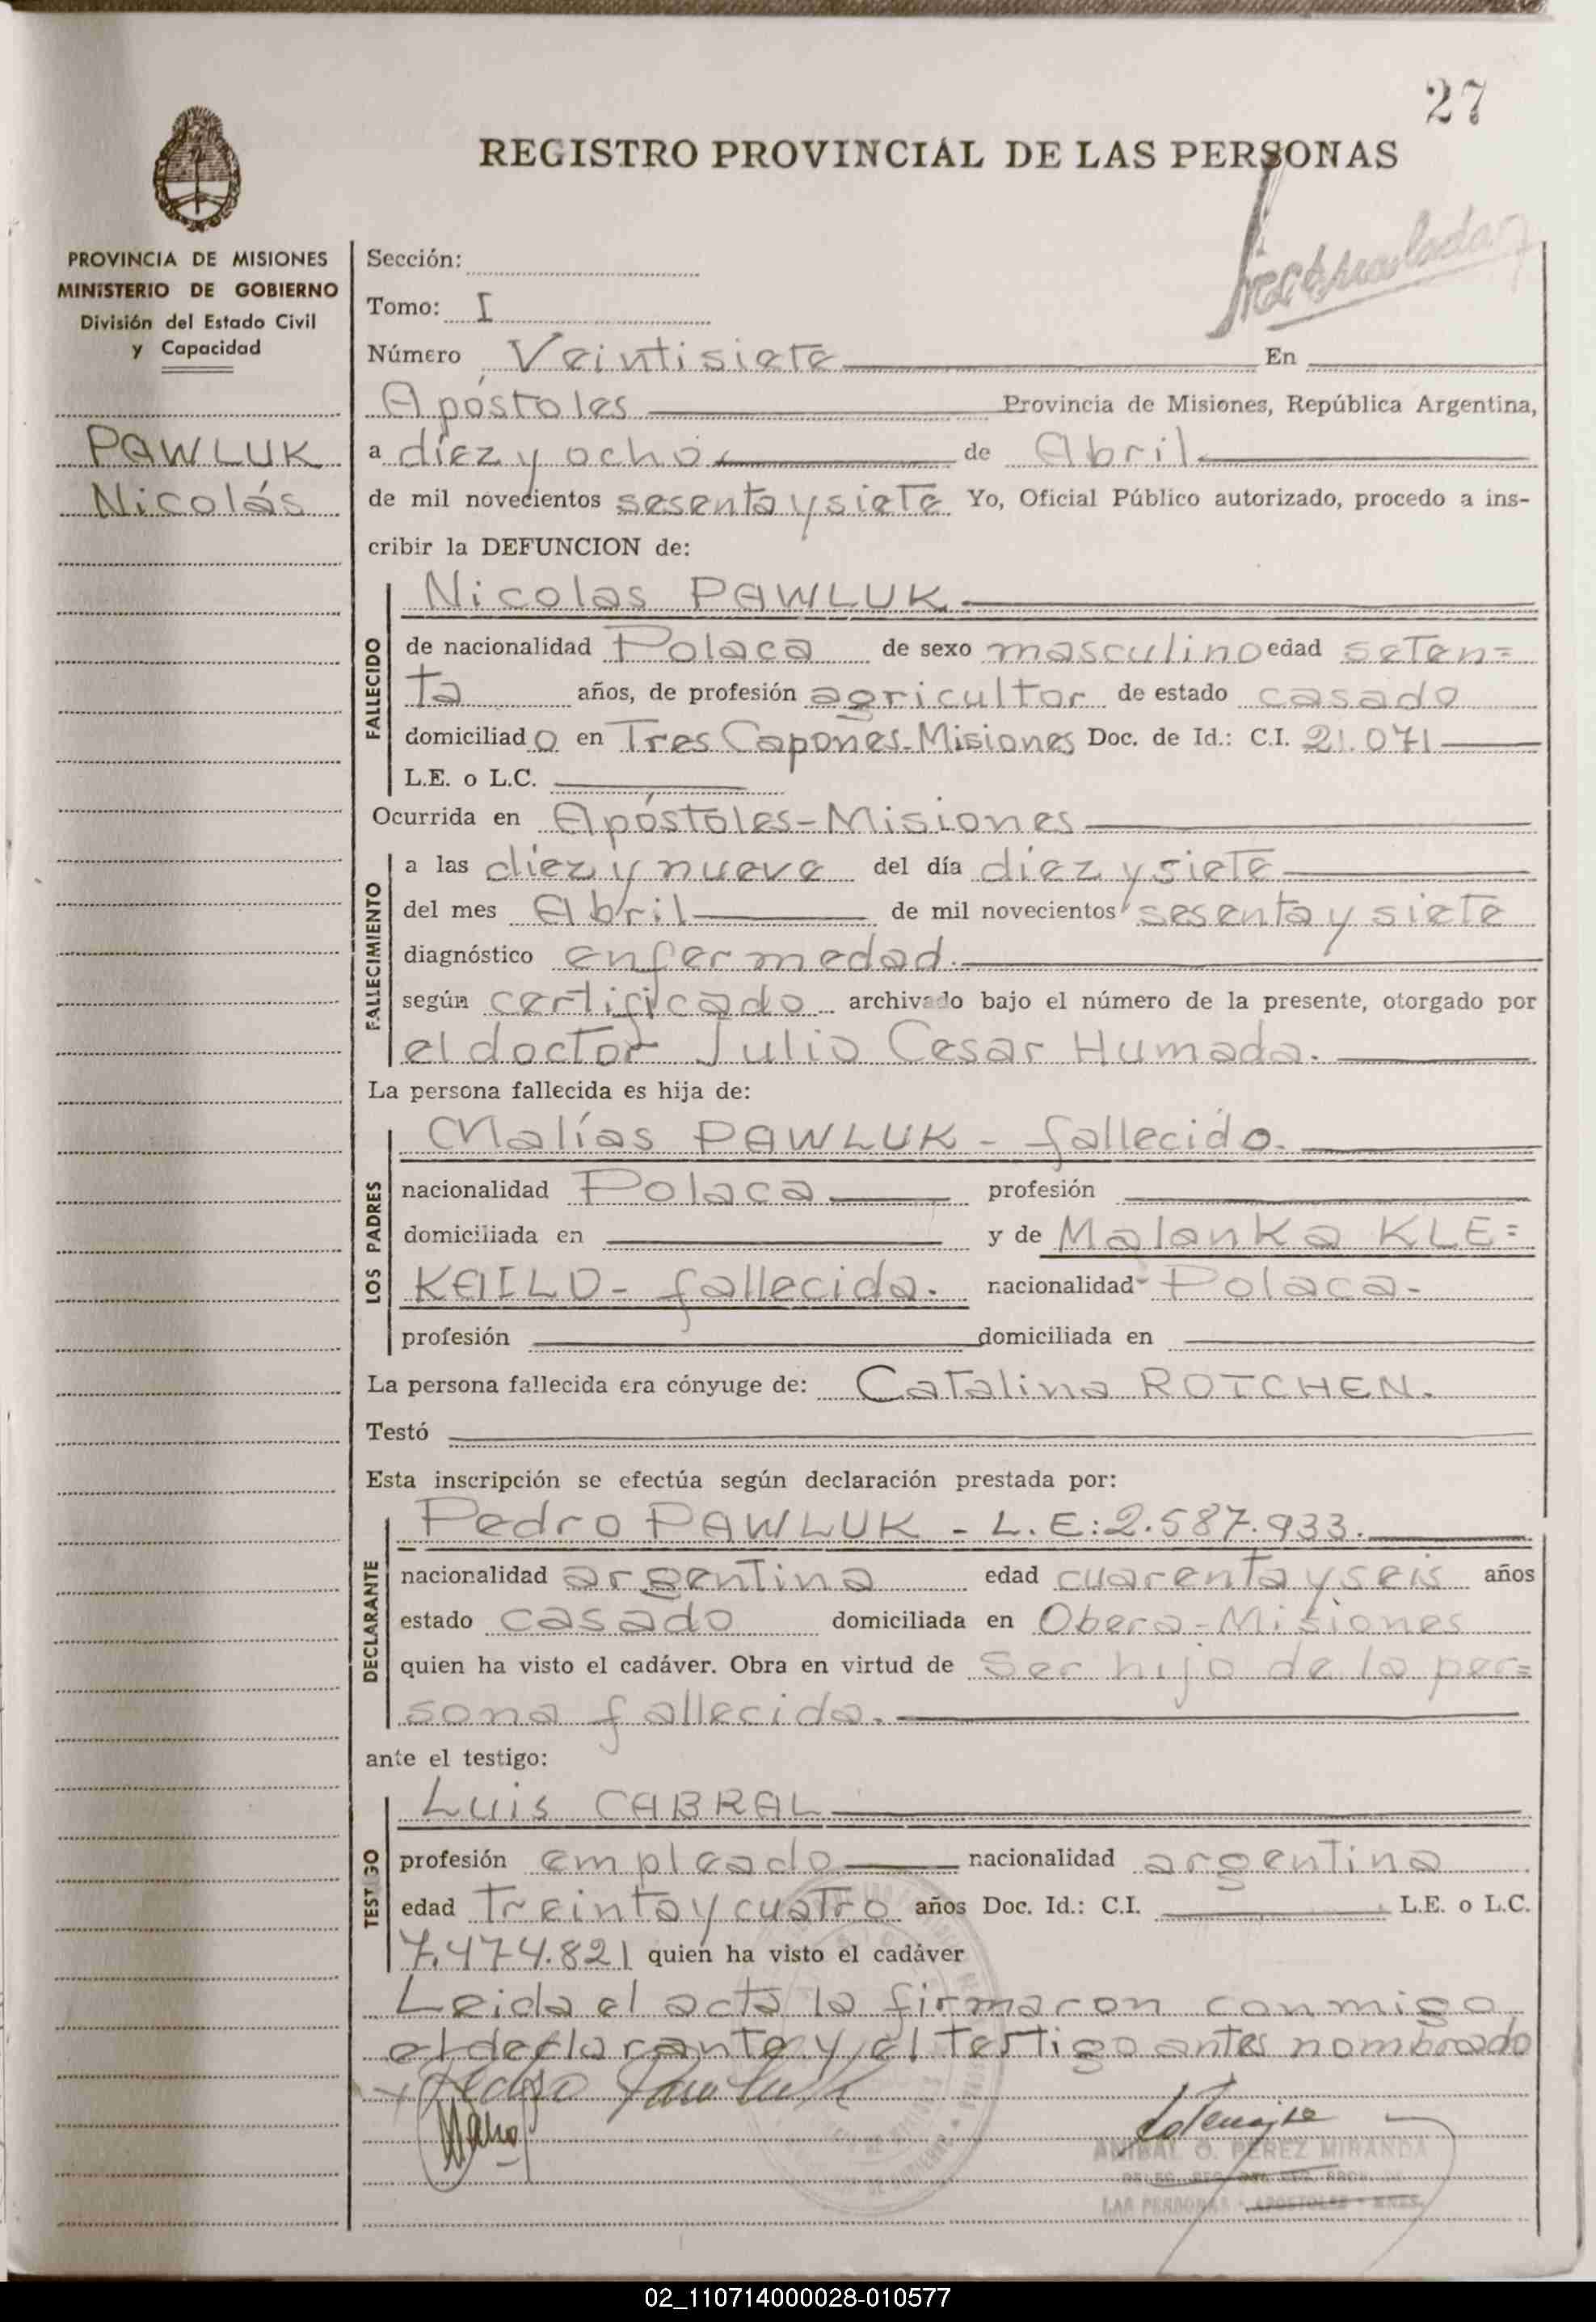 27
REGISTRO PROVINCIAL DE LAS PERSONAS
PROVINCIA DE MISIONES
MINISTERIO DE GOBIERNO
División del Estado Civil
y Capacidad
PAWLUK
Nicolás
Sección:
Tomo: I
Número Veintisiete En
Apóstoles Provincia de Misiones, República Argentina,
a diez y ocho de Abril
de mil novecientos sesenta y siete Yo, Oficial Público autorizado, procedo a ins-
cribir la DEFUNCION de:
FALLECIDO
Nicolas PAWLUK
de nacionalidad Polaca de sexo masculino edad seten=
ta años, de profesión agricultor de estado casado
domiciliado en Tres Capones-Misiones Doc. de Id.: C.I. 21.071
L.E. o L.C.
Ocurrida en Apóstoles-Misiones
FALLECIMIENTO
a las diez y nueve del día diez y siete
del mes Abril de mil novecientos sesenta y siete
diagnóstico enfermedad.
según certificado archivado bajo el número de la presente, otorgado por
el doctor Julio Cesar Humada.
La persona fallecida es hija de:
LOS PADRES
Malías PAWLUK - fallecido.
nacionalidad Polaca profesión
domiciliada en y de Malanka KLE=
KAILO- fallecida. nacionalidad Polaca-
profesión domiciliada en
La persona fallecida era cónyuge de: Catalina ROTCHEN.
Testó
Esta inscripción se efectúa según declaración prestada por:
DECLARANTE
Pedro PAWLUK - L.E:2.587.933.
nacionalidad argentina edad cuarenta y seis años
estado casado domiciliada en Obera-Misiones
quien ha visto el cadáver. Obra en virtud de Ser hijo de la per=
sona fallecida.
ante el testigo:
TESTIGO
Luis CABRAL
profesión empleado nacionalidad argentina
edad Treinta y cuatro años Doc. Id.: C.I. L.E. o L.C.
7.474.821 quien ha visto el cadáver
Leida el acta la firmaron conmigo
el declarante y el testigo antes nombrado
Pedro Pawluk
ANIBAL O. PEREZ MIRANDA
LAS PERSONAS - APOSTOLES - MNES.
02_110714000028-010577